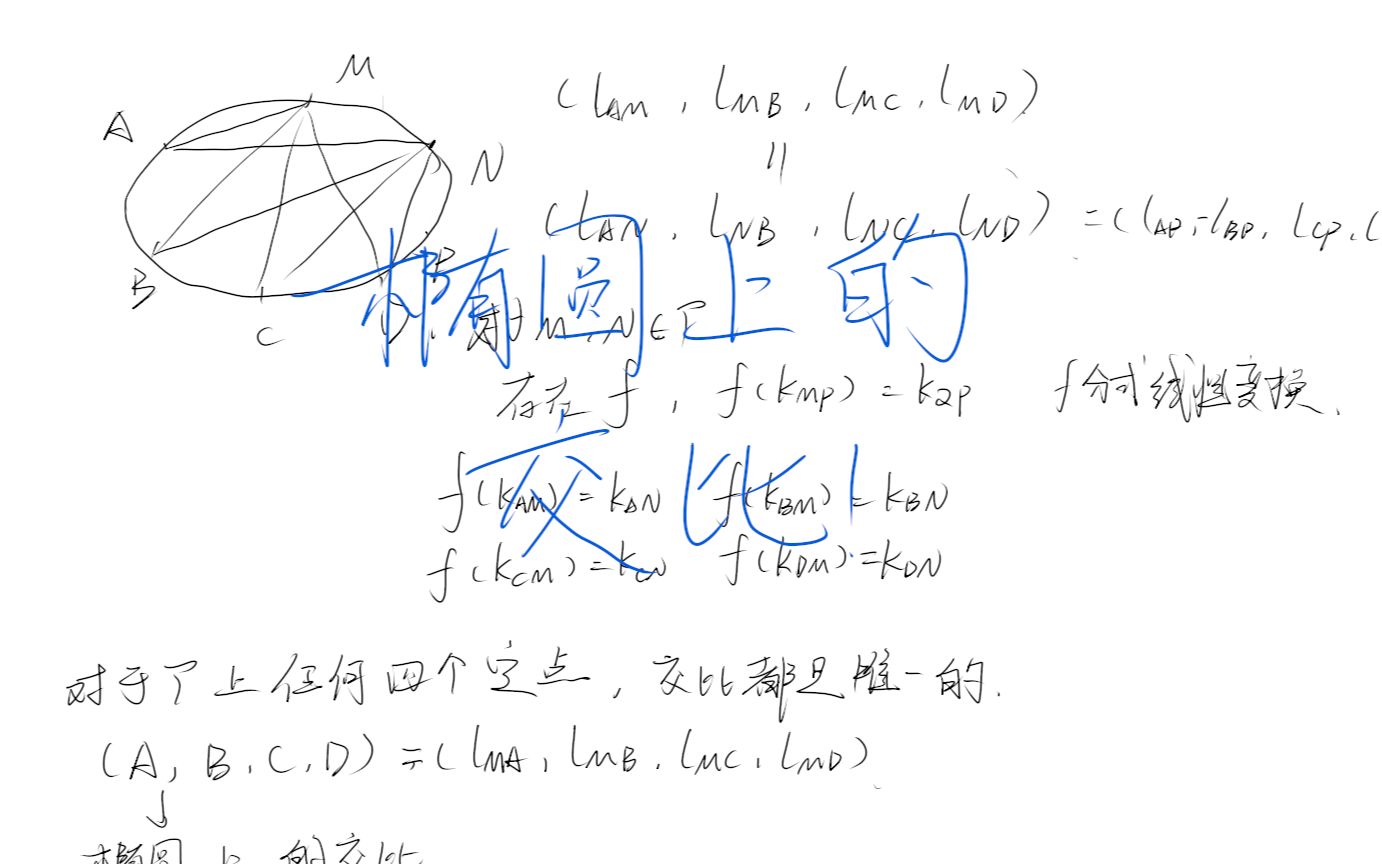 M
(l_AM , l_MB , l_MC , l_MD)
A
=
N
(l_AN , l_NB , l_NC , l_ND) = (l_AP , l_BP , l_CP , l
B
C
D
椭圆上的
对于 M , N ∈ Γ
存在 f , f(k_MP) = k_2P f分式线性变换.
交比
f(k_AM) = k_AN f(k_BM) = k_BN
f(k_CM) = k_CN f(k_DM) = k_DN
对于 Γ 上任何四个定点 , 交比都是唯一的.
(A , B , C , D) = (l_MA , l_MB , l_MC , l_MD)
↓
椭圆上的交比